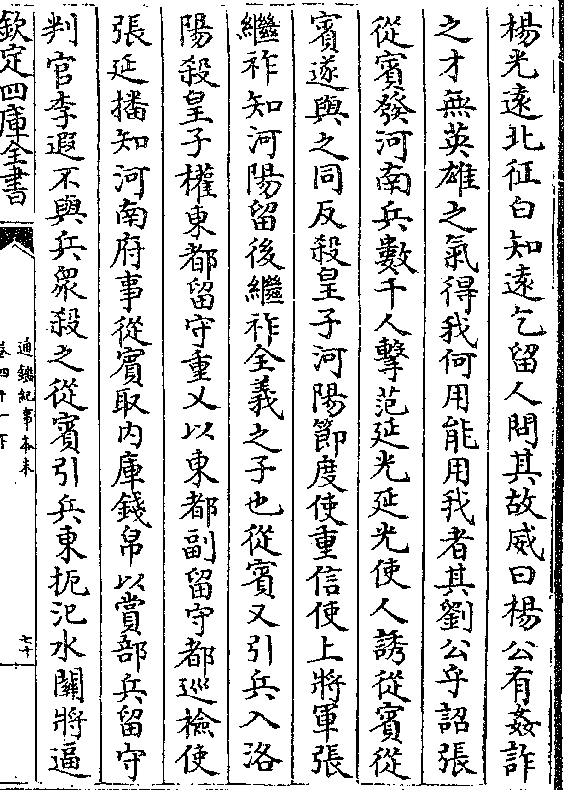 楊光遠北征白知遠乞留人問其故威曰楊公有姦詐
之才無英雄之氣得我何用能用我者其劉公乎詔張
從賓發河南兵數千人擊范延光延光使人誘從賓從
賓遂與之同反殺皇子河陽節度使重信使上將軍張
繼祚知河陽留後繼祚全義之子也從賓又引兵入洛
陽殺皇子權東都留守重乂以東都副留守都巡檢使
張延播知河南府事從賓取内庫錢帛以賞部兵留守
判官李遐不與兵衆殺之從賓引兵東扼汜水關將逼
欽定四庫全書
通鑑紀事本末
卷四十一下
七十